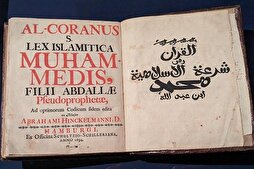 AL-CORANUS
S
LEX ISLAMITICA
MUHAM-
MEDIS,
FILII ABDALLÆ
Pseudoprophetæ,
Ad optimorum Codicum fidem edita
ABRAHAMI HINCKELMANNI, D.
HAMBURGI,
Ex Officina SCHULTZIO-SCHILLERIANA,
ANNO 1694.
القران
شرعة الاسلامية
محمد
ابن عبد الله